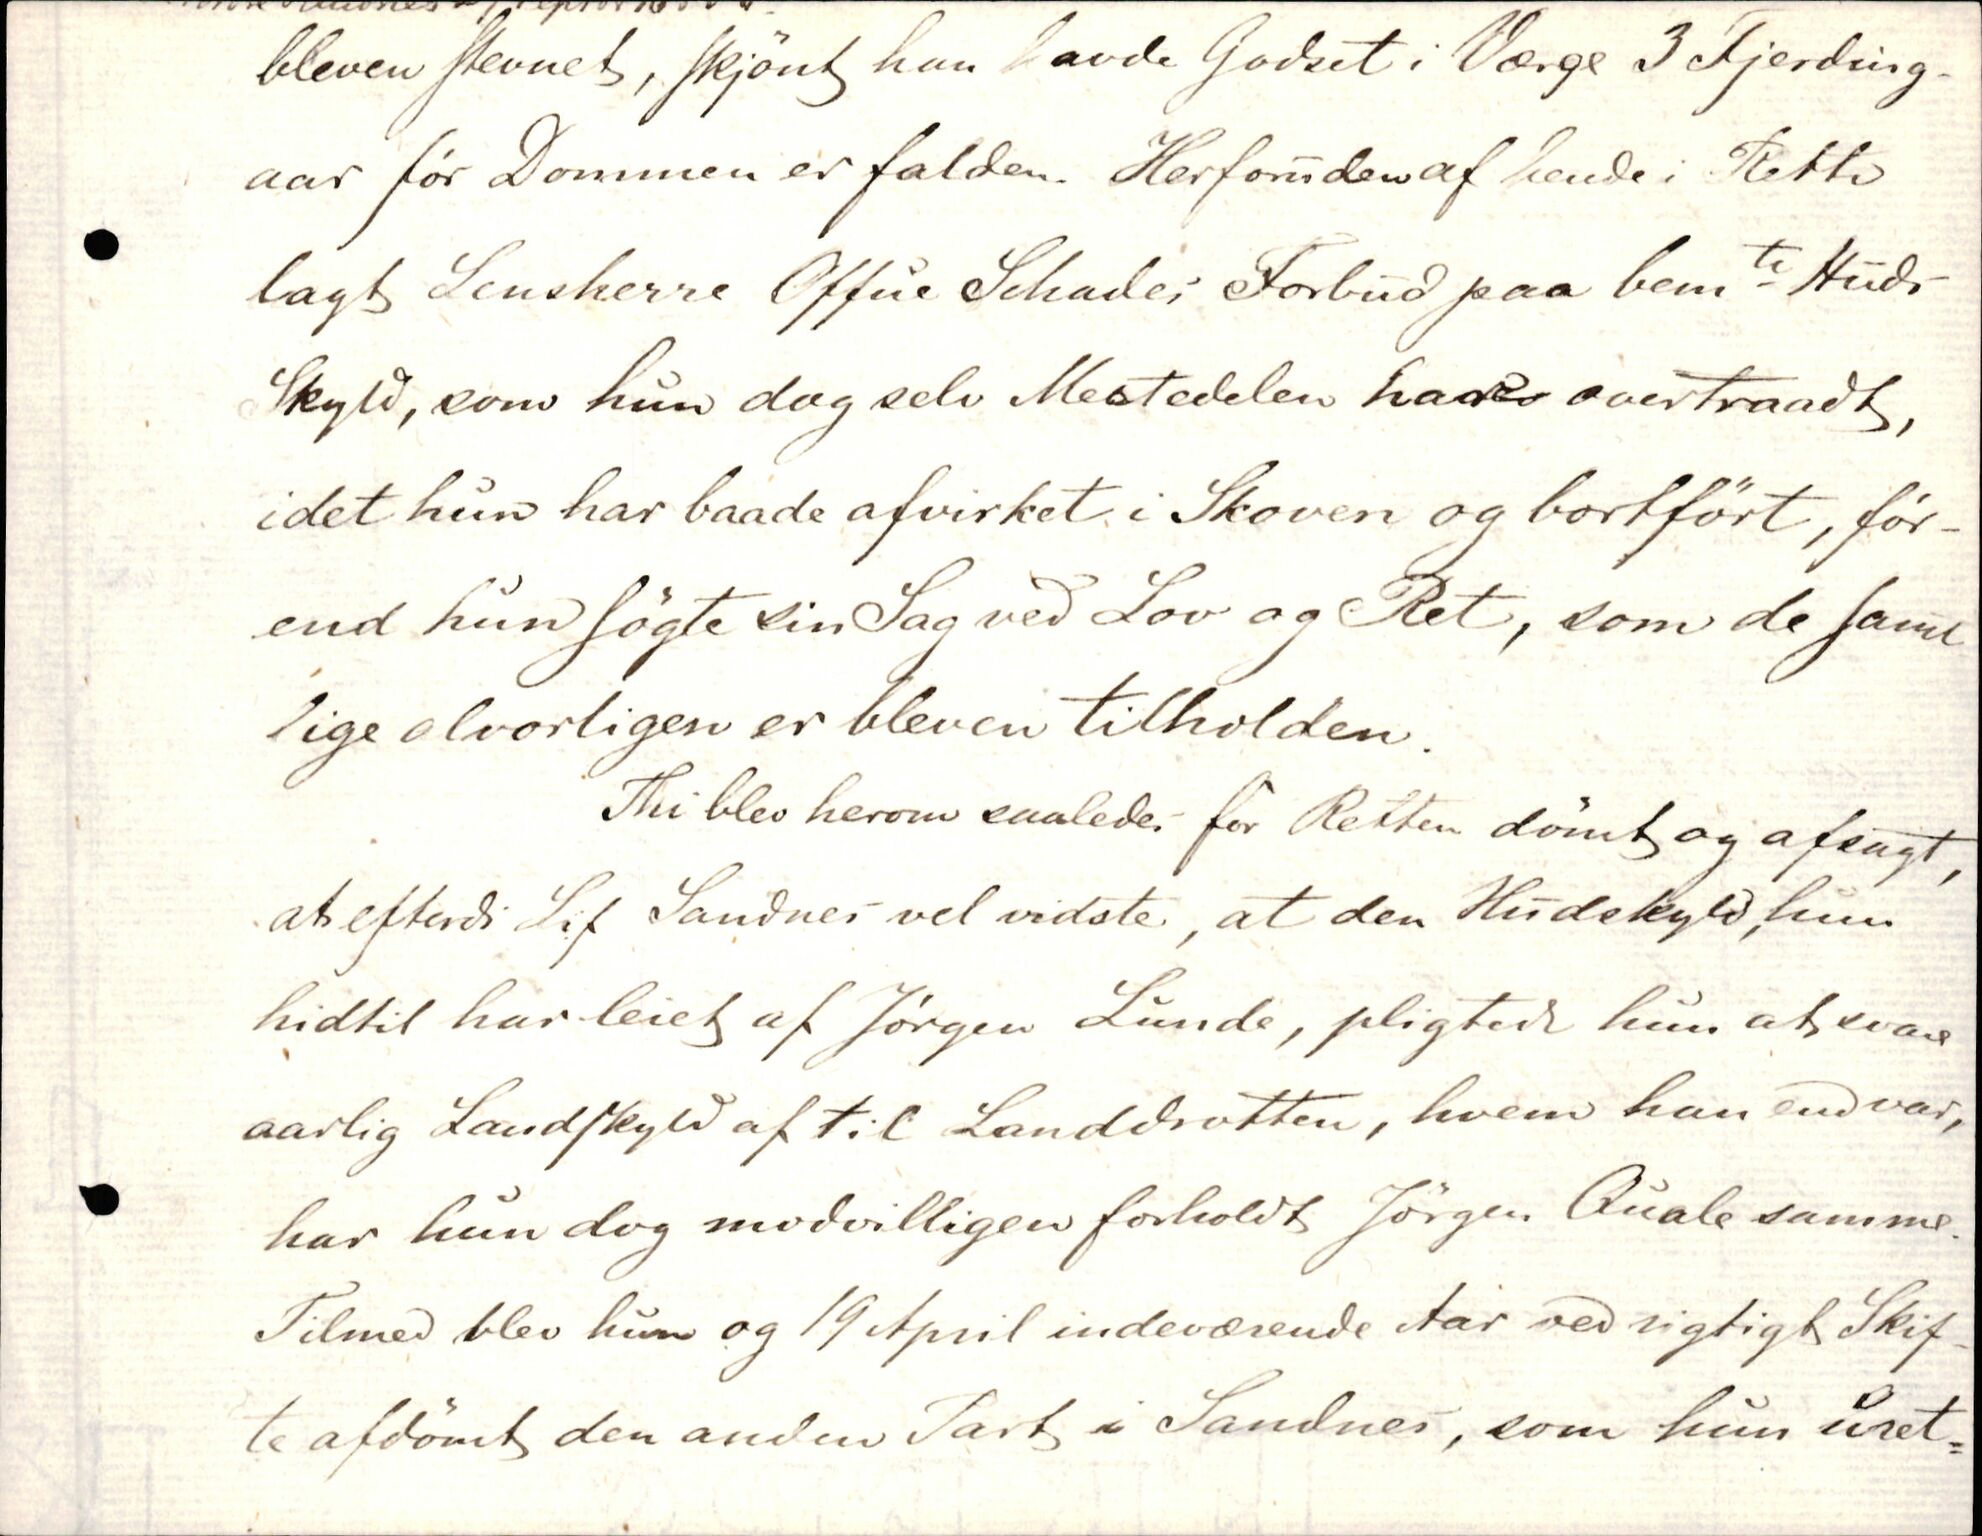 bleven stevnet, skjönt han havde Godset i Værge 3 Fjerding-
aar för Dommen er falden. Herforuden af hende i Rette
lagt Lensherre Offue Schades Forbud paa bem te Huds
Skyld, som hun dog selv Mestedelen har overtraadt,
idet hun har baade afvirket i Skoven og bortfört, för-
end hun sögte sin Sag ved Lov og Ret, som de samt
lige alvorligen er bleven tilholden.
Thi blev herom saaledes for Retten dömt og afsagt,
at efterdi Lif Sandnes vel vidste, at den Hudskyld, hun
hidtil har leiet af Jörgen Lunde, pligtede hun at svare
aarlig Landskyld af til Landdrotten, hvem han end var,
har hun dog modvilligen forholdt Jörgen Quale samme.
Tilmed blev hun og 19 April indeværende Aar ved rigtigt Skif-
te afdömt den anden Part i Sandnes, som hun uret=